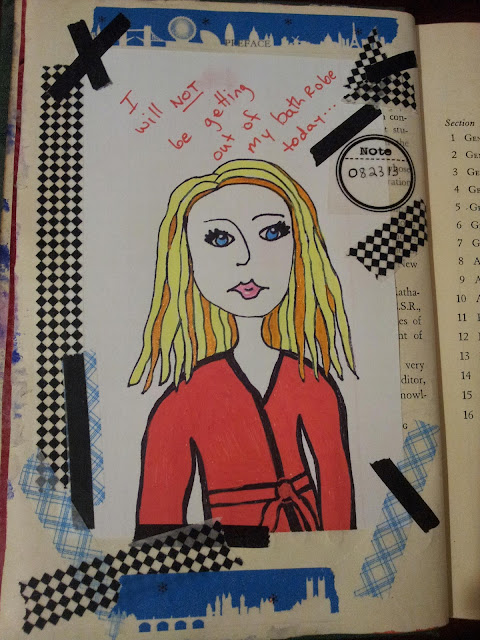 PREFACE
I
will NOT
be getting
out of
my bath robe
today....
con-
stu-
the
Note
082313
those
ration
New
atha-
.S.R.,
es of
nt of
very
ditor,
nowl-
G
Section
1 GEN
2 GE
3 GE
4 GE
5 GE
6 G
7 G
8 A
9 A
10 A
11 F
12 I
13
14
15
16